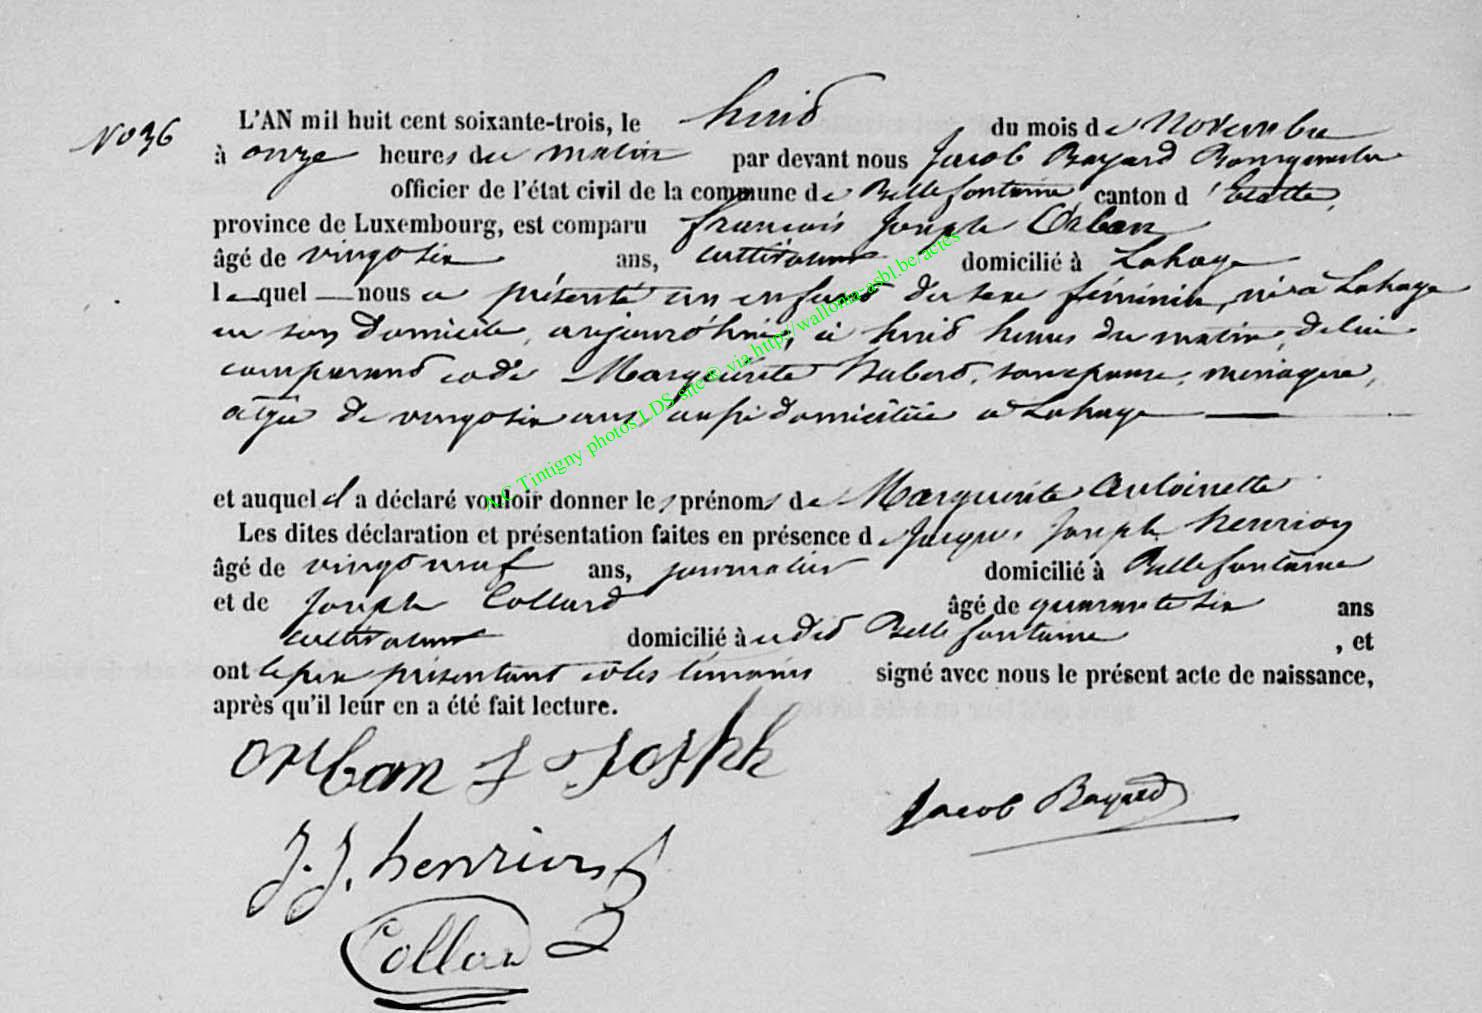 No 36
L'AN mil huit cent soixante-trois, le huid du mois de Novembre
à onze heures du matin par devant nous Jacob Bayard Bourgmestre
officier de l'état civil de la commune de Bellefontaine canton d'Etalle,
province de Luxembourg, est comparu françois Joseph Orban
âgé de vingtsix ans, cultivateur domicilié à Lahage
lequel nous a présenté un enfand du sexe féminin, né à Lahage
en son domicile, aujourd'hui, à huid heures du matin, de lui
comparand et de Marguerite Huberd, son epouse, ménagère,
âgée de vingtsix ans aussi domiciliée à Lahage
et auquel il a déclaré vouloir donner les prénoms de Marguerite Antoinette
Les dites déclaration et présentation faites en présence de Jacques Joseph Henrion
âgé de vingt neuf ans, journalier domicilié à Bellefontaine
et de Joseph Collard âgé de quarante six ans
cultivateur domicilié à udid Bellefontaine , et
ont le père présentant et les témoins signé avec nous le présent acte de naissance,
après qu'il leur en a été fait lecture.
Orban f Joseph
Jacob Bayard
J. J. henrion
Collard
A.C Tintigny photos LDS site © via http://wallonia-asbl.be/actes